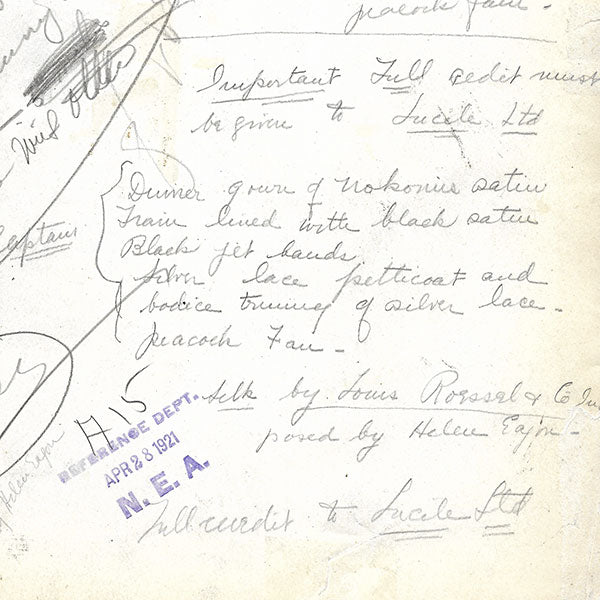 peacock fan.
Important Full credit must
be given to Lucile Ltd
Dinner gown of Nokomis satin
Train lined with black satin
Black jet bands,
silver lace petticoat and
bodice trimming of silver lace.
peacock Fan -
Silk by Louis Roessel & Co Inc
posed by Helen Eagon -
Full credit to Lucile Ltd
Captain
A15
REFERENCE DEPT.
APR 28 1921
N. E. A.